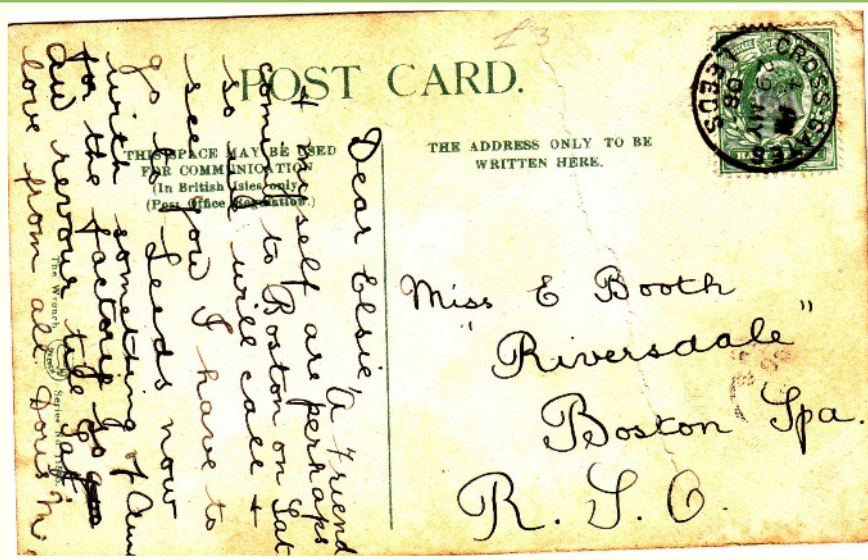 £3
POST CARD.
THIS SPACE MAY BE USED
FOR COMMUNICATION
(In British Isles only)
(Post Office Regulation.)
THE ADDRESS ONLY TO BE
WRITTEN HERE.
CROSS-GATES
LEEDS
MY
06
Dear Elsie, A Friend
& myself are perhaps
coming to Boston on Sat
so will call &
see you I have to
go to Leeds now
with something of
for the factory so
au revoir till Sat
love from all Doris M.
The Wrench
Series
Miss E Booth
"Riversdale"
Boston Spa.
R.S.O.